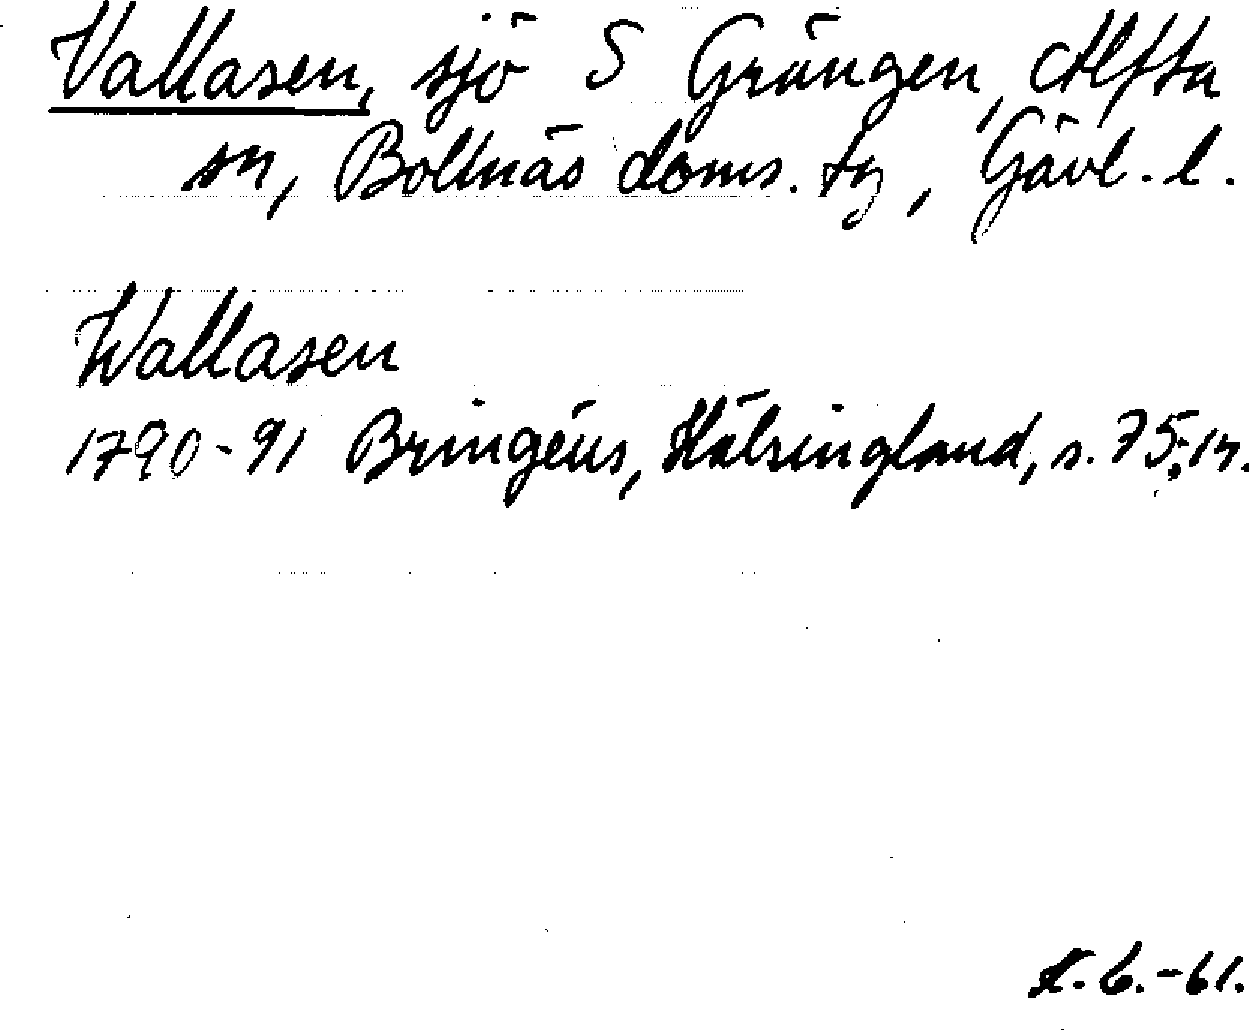 Vallasen, sjö S Grängen, Alfta
sn, Bollnäs doms. tg, Gävl. l.
Wallasen
1790-91 Bringéus, Hälsingland, s. 75;
-61.